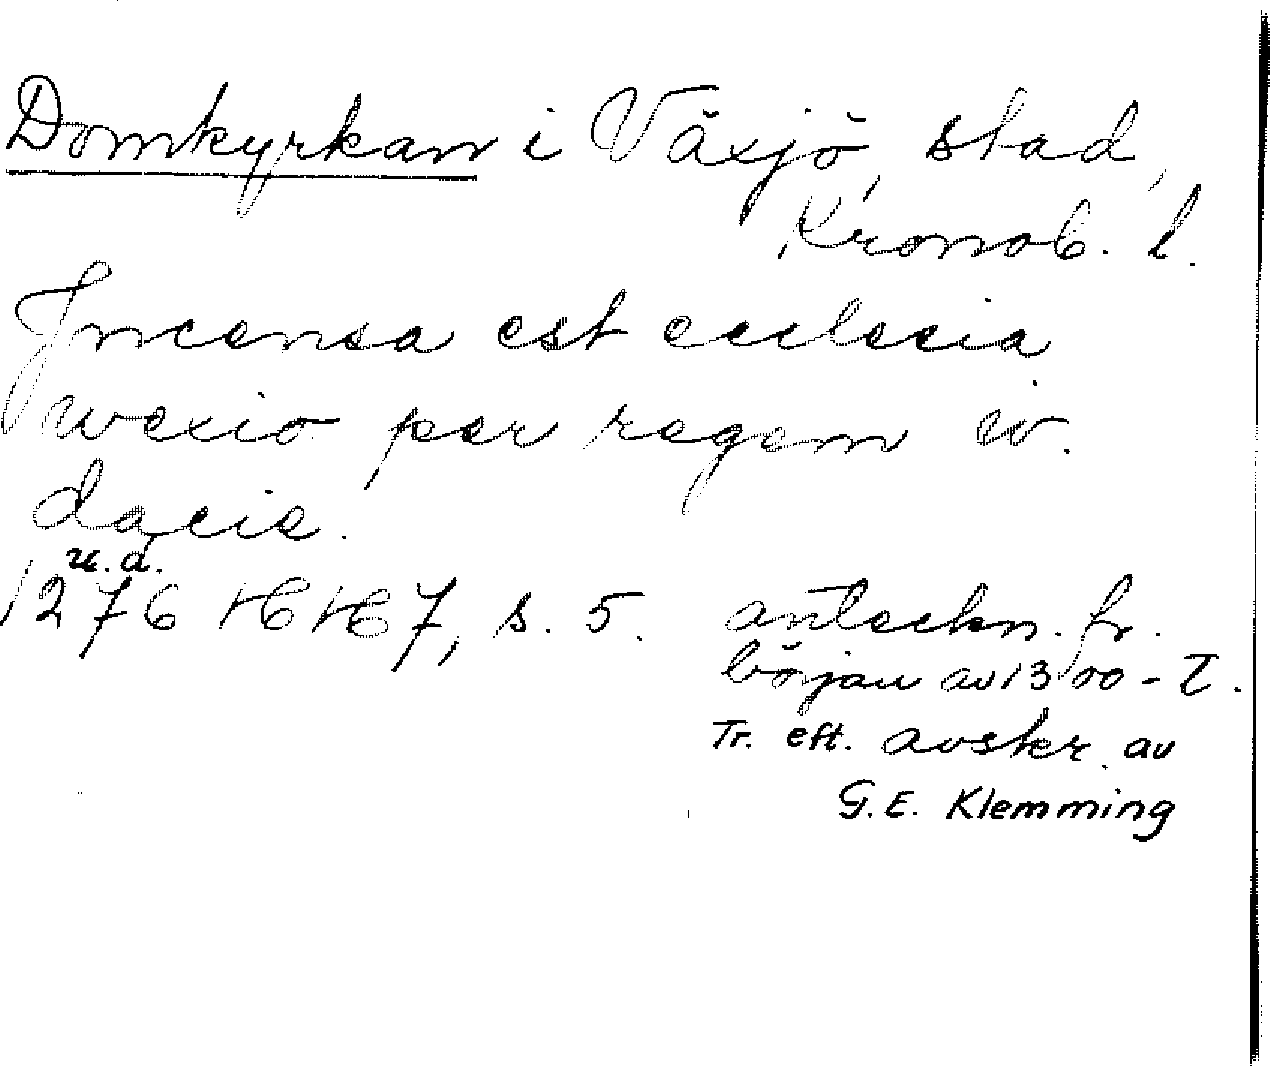 Domkyrkan i Växjö, stad,
Kronob. l.
Incensa est ecclesia
wexio per regem w.
dacie.
u. å.
1276 HH 7, s. 5. anteckn. fr.
början av 1300-t.
Tr. eft. avskr. av
G.E. Klemming